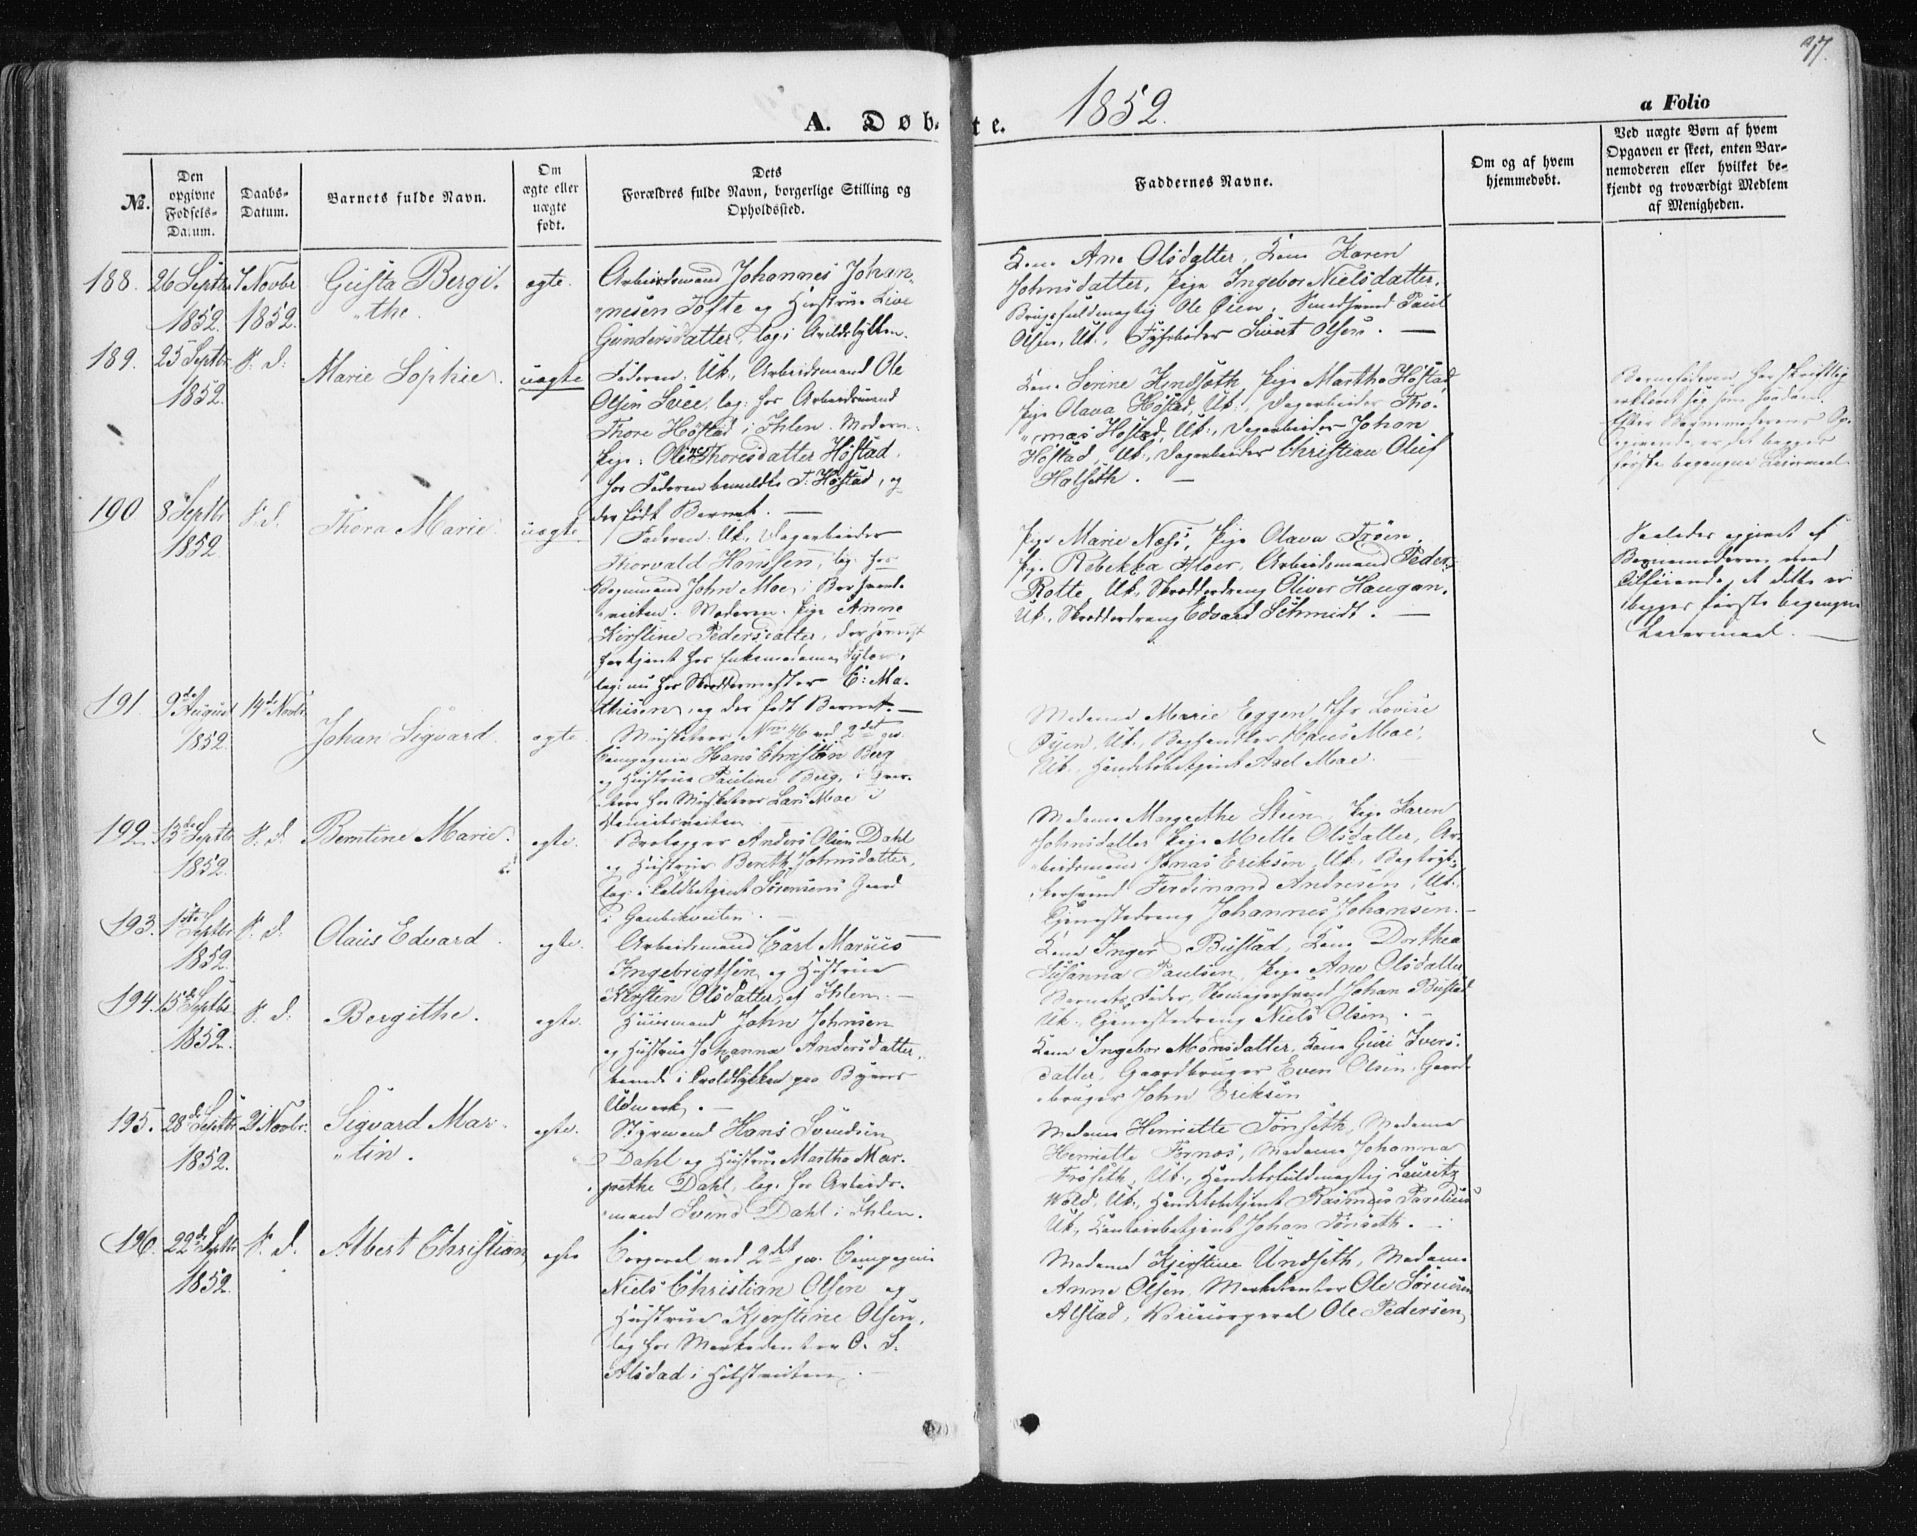 97.
A. Døbte.
1852.
a Folio
№.
Den
opgivne
Fødsels-
Datum.
Daabs-
Datum.
Barnets fulde Navn.
Om
ægte eller
uægte
født.
Dets
Forældres fulde Navn, borgerlige Stilling og
Opholdssted.
Faddernes Navne.
Om og af hvem
hjemmedøbt.
Ved uægte Børn af hvem
Opgaven er skeet, enten Bar-
nemoderen eller hvilket be-
kjendt og troværdigt Medlem
af Menigheden.
188.
26 Septbr
1852.
7 Novbr
1852.
Gusta Bergi-
the.
ægte.
Arbeidsmand Johannes Johan-
nesen Tofte og Hustrue Live
Gundersdatter, log: i
Kone Ane Olsdatter, Kone Karen
Johnsdatter, Pige Ingebor Nielsdatter,
Brugsfuldmægtig Ole Øien, Smedsvend Paul
Olsen, Uk., Sivert Olsen. —
189.
25 Septbr
1852.
S. d.
Marie Sophie.
uægte
Faderen: Uk., Arbeidsmand Ole
Olsen Svee, log: hos Arbeidsmand
Thore Høstad i Ihlen. Moderen:
Pige: Oline Thoresdatter Høstad,
hos Faderen bemeldte T. Høstad, og
der født Barnet. —
Kone Serine Kindseth, Pige Martha Høstad,
Pige Olava Høstad, Uk., Dagarbeider Tho-
mas Høstad, Uk., Dagarbeider Johan
Høstad, Uk., Dagarbeider Christian Oluf
Halseth. —
Barnefaderen har skriftlig
erklært sig som saadan.
Efter Barnemoderens Op-
givende er det begges
første begangne Leiermaal.
190
8 Septbr
1852.
S. d.
Thora Marie.
uægte.
Faderen: Uk., Dagarbeider
Thorvald Hanssen, log: hos
John Moe i
Moderen. Pige Anne
Kirstine Pedersdatter,
log: nu hos Skræddermester E: Ma-
thisen, og der født Barnet. —
Pige Marie Næss, Pige Olava Trøen,
Pige Rebekka Aloer, Arbeidsmand Peder
Rotte, Uk., Skrædderdreng Oliver Haugan,
Uk., Skrædderdreng Edvard Schmidt. —
Saaledes opgivet af
Barnemoderen med
Tilføiende, at dette er
begges første begangne
Leiermaal. —
191.
9de August
1852.
14de Novbr
Johan Sigvard.
ægte.
Musketeer No 46 ved 2det gw.
Compagnie Hans Christian Berg
og Hustrue Pauline Berg, i Qvar-
teer hos Musketeer Lars Moe i
Madame Marie Eggen, Jfr Lovise
Øyen, Uk., Hans Moe,
Uk., Handelsbetjent Axel Moe.
192.
13de Septbr
1852.
S. d.
Berntine Marie.
ægte.
Anders Olsen Dahl
og Hustrue Bereth Johnsdatter,
log: i Toldbetjent Sørensens Gaard
i Gaubekveiten.
Madame Margrethe Stein, Pige Karen
Johnsdatter, Pige Mette Olsdatter, Ar-
beidsmand Jonas Eriksen, Uk., Bogtryk-
kersvend Ferdinand Andresen, Uk.,
Tjenestedreng Johannes Johansen. —
193.
1ste Septbr
1852.
S. d.
Olaus Edvard.
ægte.
Arbeidsmand Carl Marius
Ingebrigtsen og Hustrue
Kirsten Olsdatter, af Ihlen. —
Kone Inger Bustad, Kone Dorthea
Susanna Paulsen, Pige Ane Olsdatter,
Barnets Fader, Skomagersvend Johan Bustad
Uk., Tjenestedreng Niels Olsen. —
194.
15de Septbr
1852.
S. d.
Bergithe.
ægte.
Huusmand John Johnsen
og Hustrue Johanna Andersdatter,
boende i paa Byens
Udmark. —
Kone Ingebor Monsdatter, Kone Guri Ivers-
datter, Gaardbruger Even Olsen, Gaard-
bruger John Eriksen
195.
28de Septbr
1852.
21 Novbr.
Sigvard Mar-
tin.
ægte.
Styrmand Hans Svendsen
Dahl og Hustrue Martha Mar-
grethe Dahl, log: hos Arbeids-
mand Svend Dahl i Ihlen.
Madame Henriette Tønseth, Madame
Henriette Fornæs, Madame Johanna
Frøseth, Uk., Handelsfuldmægtig Lauritz
Wold, Uk., Handelsbetjent Rasmus Parelius
Uk., Contoirbetjent Johan Tønseth. —
196.
22de Septbr
1852.
S. d.
Albert Christian,
ægte
Corporal ved 2det gw. Compagnie
Niels Christian Olsen og
Hustrue Kjerstine Olsen,
log hos Marketenter O. S.
Alstad i
Madame Kjerstine Undseth, Madame
Anne Olsen, Marketenter Ole Sørensen
Alstad, Ole Pedersen,